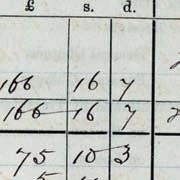 £ s. d.
166 16 7
166 16 7
75 10 3